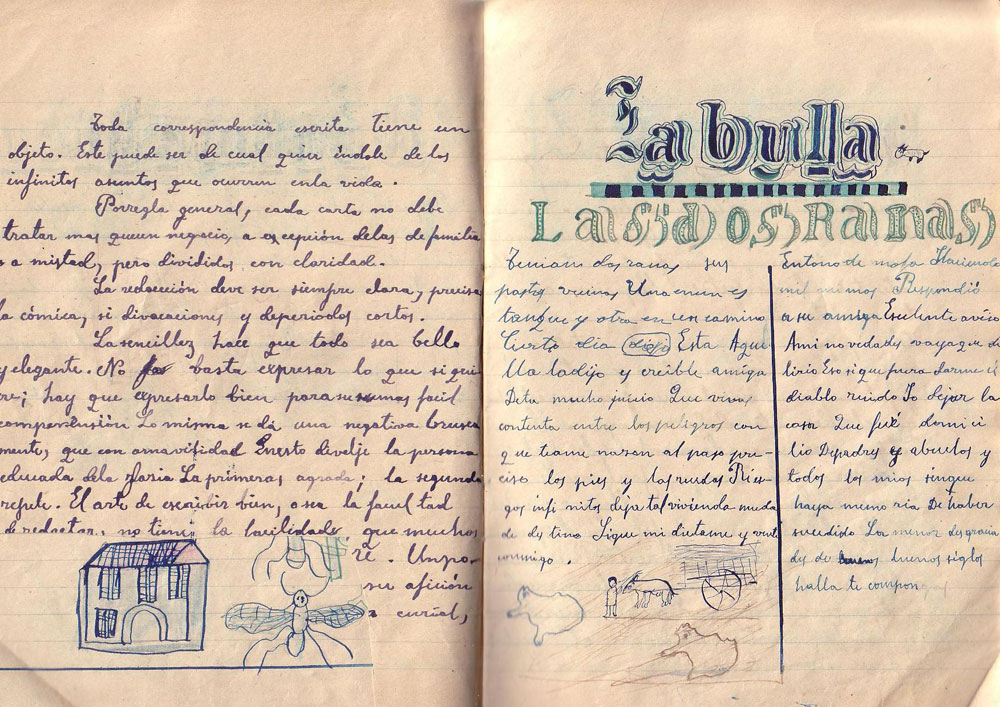 Toda correspondencia escrita tiene un
objeto. Este puede ser de cual quier indole de los
infinitos asuntos que ocurren enla vida.
Porregla general, cada carta no debe
tratar mas queun negocio, a excepción delas de familia
o a mistad, pero divididos con claridad.
La redacción deve ser siempre clara, precisa
la cómica, si divacaciones y deperiódos cortos.
La sencillez hace que todo sea bello
y elegante. No basta expresar lo que si quie
re; hay que expresarlo bien para su mas facil
comprendusión Lo misma se dá una negativa brusca
mente, que con amavisidad Enesto
la persona
educada dela
La primeras agrada; la segunda
repute. El arte de escribir bien, o sea la facul tad
de redactar, no tiene la bacilidade que muchos
Unpo-
su afición
a curial,
Fabulla.
Las dos Ranas
Tenian dos ranas sus
pastos vecinos Una en un es
tanque y otra en un camino
Cierto dia Esta Aque
lla la dijo y creible amiga
Deta mucho juicio Que vivas
contenta entre los peligros con
que tiame nazan al paso pre-
ciso los pies y las ruedas Ries-
gos infi nitos dija tal vivienda muda
de des tino Sigue mi dictame y vente
conmigo.
Entono de mofa Haciendo
mil mimos Respondió
a su amiga Exelente aviso
Ami novedades vaya que de
lirio Eso si que fuera darme el
diablo ruido Yo dejar la
casa Que fué domici
lio Depadres y abuelos y
todos los mios sinque
haya memo ria De haber
sucedido La menor desgracia
des de luenos siglos
halla te compon